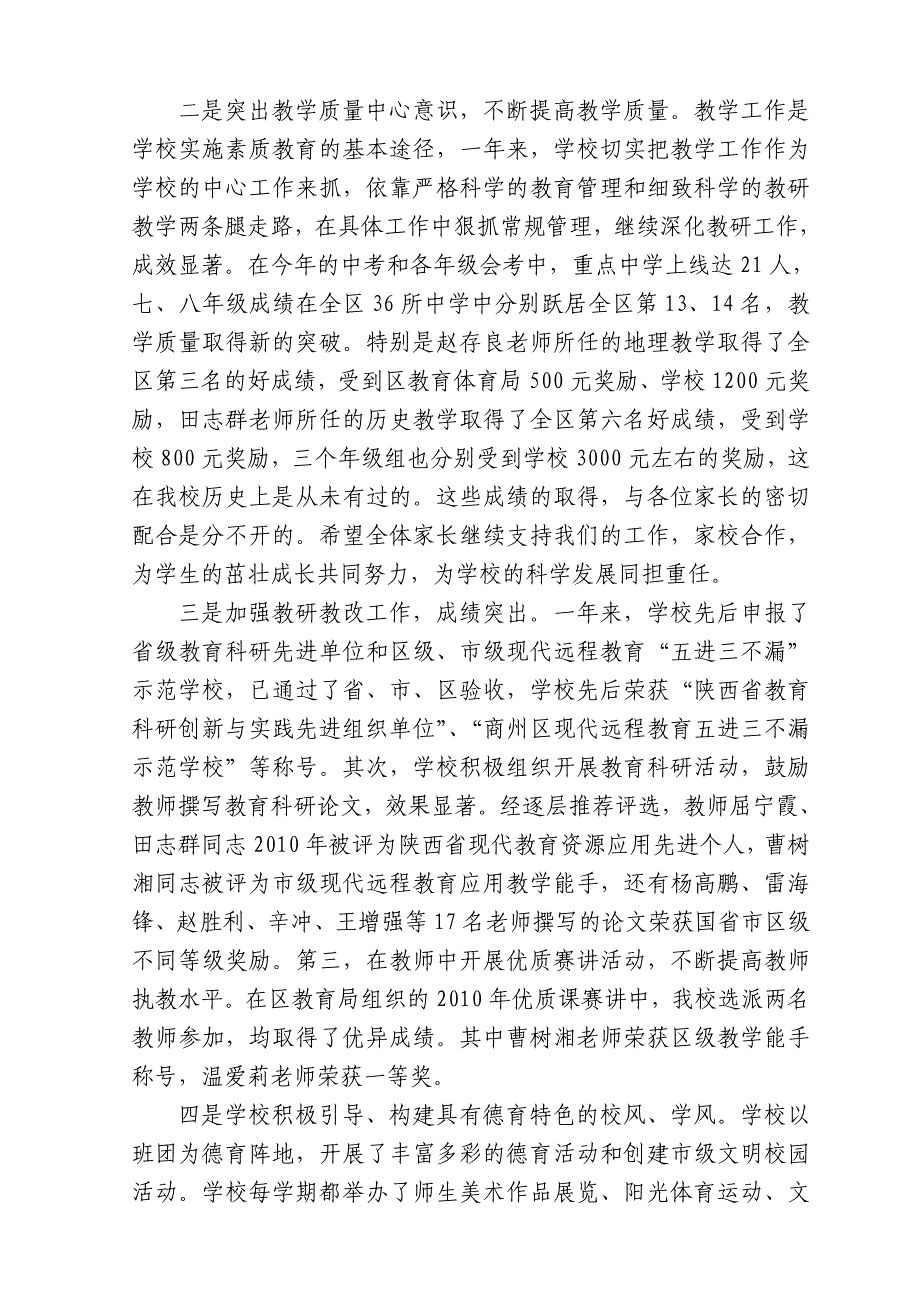 二是突出教学质量中心意识，不断提高教学质量。教学工作是
学校实施素质教育的基本途径，一年来，学校切实把教学工作作为
学校的中心工作来抓，依靠严格科学的教育管理和细致科学的教研
教学两条腿走路，在具体工作中狠抓常规管理，继续深化教研工作，
成效显著。在今年的中考和各年级会考中，重点中学上线达 21 人，
七、八年级成绩在全区 36 所中学中分别跃居全区第 13、14 名，教
学质量取得新的突破。特别是赵存良老师所任的地理教学取得了全
区第三名的好成绩，受到区教育体育局 500 元奖励、学校 1200 元奖
励，田志群老师所任的历史教学取得了全区第六名好成绩，受到学
校 800 元奖励，三个年级组也分别受到学校 3000 元左右的奖励，这
在我校历史上是从未有过的。这些成绩的取得，与各位家长的密切
配合是分不开的。希望全体家长继续支持我们的工作，家校合作，
为学生的茁壮成长共同努力，为学校的科学发展同担重任。
三是加强教研教改工作，成绩突出。一年来，学校先后申报了
省级教育科研先进单位和区级、市级现代远程教育“五进三不漏”
示范学校，已通过了省、市、区验收，学校先后荣获“陕西省教育
科研创新与实践先进组织单位”、“商州区现代远程教育五进三不漏
示范学校”等称号。其次，学校积极组织开展教育科研活动，鼓励
教师撰写教育科研论文，效果显著。经逐层推荐评选，教师屈宁霞、
田志群同志 2010 年被评为陕西省现代教育资源应用先进个人，曹树
湘同志被评为市级现代远程教育应用教学能手，还有杨高鹏、雷海
锋、赵胜利、辛冲、王增强等 17 名老师撰写的论文荣获国省市区级
不同等级奖励。第三，在教师中开展优质赛讲活动，不断提高教师
执教水平。在区教育局组织的 2010 年优质课赛讲中，我校选派两名
教师参加，均取得了优异成绩。其中曹树湘老师荣获区级教学能手
称号，温爱莉老师荣获一等奖。
四是学校积极引导、构建具有德育特色的校风、学风。学校以
班团为德育阵地，开展了丰富多彩的德育活动和创建市级文明校园
活动。学校每学期都举办了师生美术作品展览、阳光体育运动、文